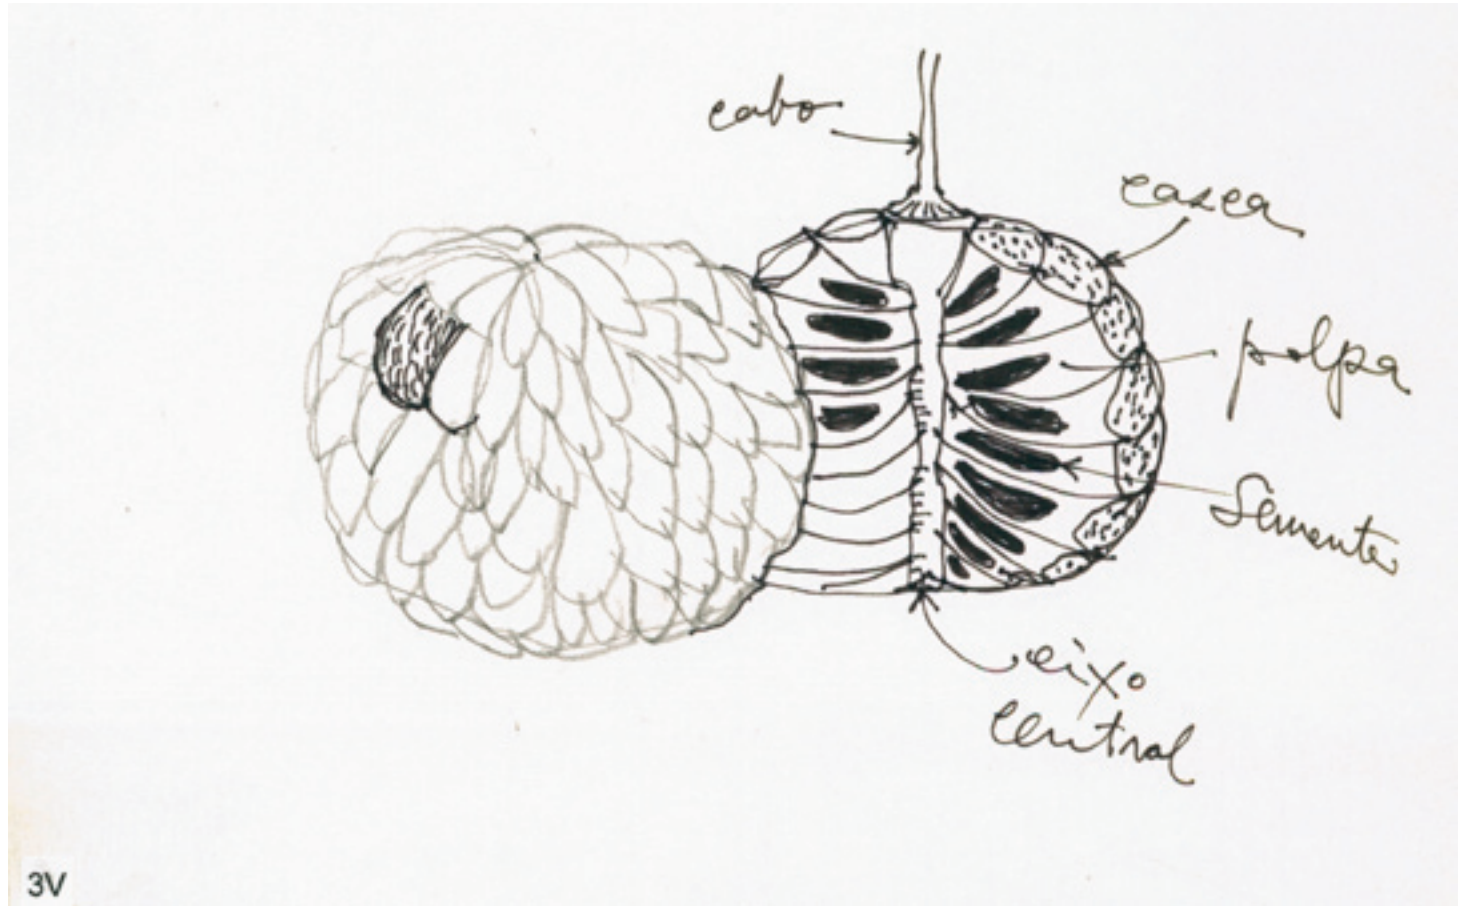 cabo
casca
polpa
Semente
eixo
central
3V